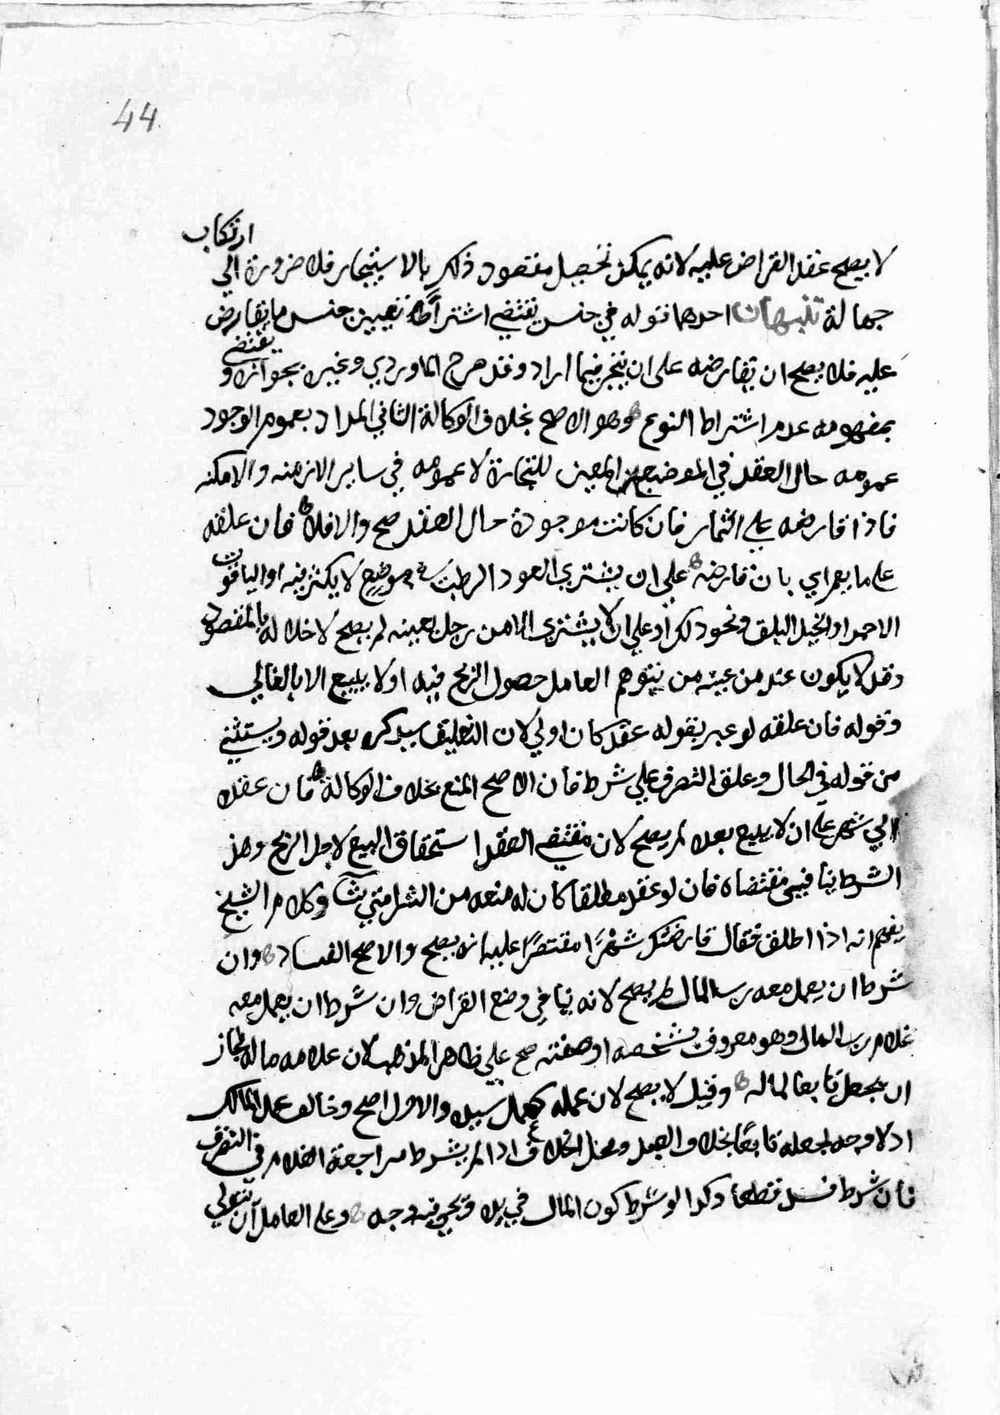 44
لا يصح عقد القراض عليه لانه يمكن تحصيل مقصود ذلك بالاستيجار فلا ضرورة الي ارتكاب
جهالة تنبيهات احدهما قوله في جنس يقتضي اشتراط تعيين جنس ما يقارض
عليه فلا يصح ان يقارضه علي ان يتجر فيما اراد وقد صرح الماوردي وغيره بجوازه ويقتضي
بمفهومه عدم اشتراط النوع وهو الاصح بخلاف الوكالة الثاني المراد بعموم الوجود
عمومه حال العقد في الموضع المعين للتجارة لا عمومه في ساير الازمنه والامكنه
فاذا قارضه علي الثمار فان كانت موجودة حال العقد صح والا فلا فان علقه
علي ما يعز اي بان قارضه علي ان يشتري العود الرطب في موضع لا يكثر فيه او الياقوت
الاحمر او الخيل البلق ونحو ذلك او علي ان لا يشتري الا من رجل بعينه لم يصح لاخلاله بالمقصود
وقد لا يكون عند من عينه من يتوهم العامل حصول الربح فيه او لا يبيع الا بالغالي
وقوله فان علقه لو عبر بقوله عقد كان اولي لان التعليق سيذكره بعد قوله ويستثني
من قوله في الحال وعلق التصرف علي شرط فان الاصح المنع بخلاف الوكالة فان عقد
الي شهر علي ان لا يبيع بعده لم يصح لان مقتضي العقد استحقاق البيع لاجل الربح وهذا
الشرط ينافي مقتضاه فان لو عقد مطلقا كان له منعه من الشرا متي شآ وكلام الشيخ
يفهم انه اذا اطلق فقال قارضتك شهرًا مقتصرًا عليه انه يصح والاصح الفساد وان
شرط ان يعمل معه رب المال لم يصح لانه ينافي وضع القراض وان شرط ان يعمل معه
غلام رب المال وهو معروف بشخصه او صفته صح علي ظاهر المذهب لان غلامه ماله فجاز
ان يجعل تابعا لماله وقيل لا يصح لان عمله كعمل سيده والاول اصح وخالف عمل المالك
اذ لا وجه لجعله تابعًا بخلاف العبد ومحل الخلاف اذا لم يشرط مراجعة الغلام في التصرف
فان شرط فسد قطعا وكذا لو شرط كون المال في يده ويجي فيه وجه وعلي العامل ان يتولي